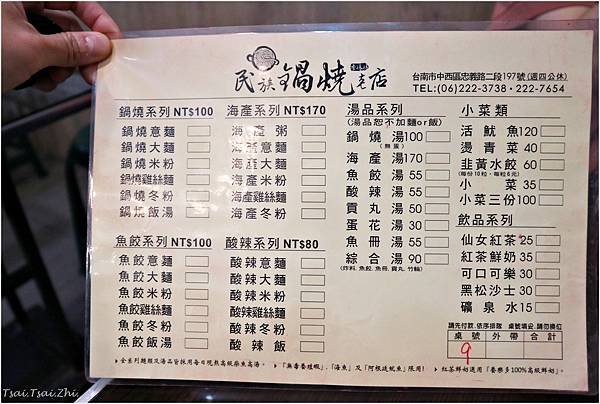 民族鍋燒老店
台南市中西區忠義路二段197號(週四公休)
TEL:(06)222-3738・222-7654
鍋燒系列 NT$100
鍋燒意麵
鍋燒大麵
鍋燒米粉
鍋燒雞絲麵
鍋燒冬粉
鍋燒飯湯
魚餃系列 NT$100
魚餃意麵
魚餃大麵
魚餃米粉
魚餃雞絲麵
魚餃冬粉
魚餃飯湯
海產系列 NT$170
海產粥
海產意麵
海產大麵
海產米粉
海產雞絲麵
海產冬粉
酸辣系列 NT$80
酸辣意麵
酸辣大麵
酸辣米粉
酸辣雞絲麵
酸辣冬粉
酸辣飯
湯品系列
(湯品恕不加麵or飯)
鍋燒湯100
(無蛋)
海產湯170
魚餃湯 55
酸辣湯 55
貢丸湯 50
蛋花湯 30
魚冊湯 55
綜合湯 90
(炸料、魚餃、魚冊、貢丸、竹輪)
小菜類
活魷魚120
燙青菜 40
韭黃水餃 60
(每份10粒，每粒6元)
小菜 35
小菜三份100
飲品系列
仙女紅茶 25
紅茶鮮奶 35
可口可樂 30
黑松沙士 30
礦泉水 15
請先付款、依序排隊 桌號填妥、請勿換位
桌號 外帶 合計
9
▸全系列麵類及湯品皆採用每日現熬高級柴魚高湯。
▸「無毒養殖蝦」、「海魚」及「阿根廷魷魚」限用!
▸紅茶鮮奶選用「養樂多100%高級鮮奶」。
Tsai.Tsai.Zhi.